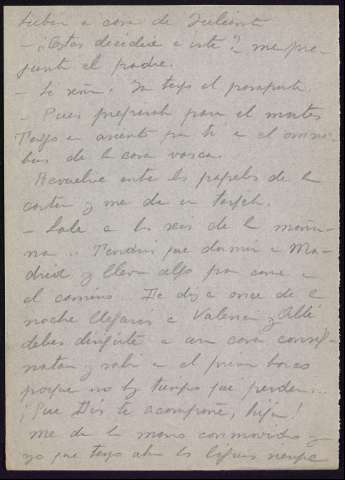 subir a casa de
— ¿Estás decidida a irte? me pre-
gunta el padre.
— Sí señor. Ya tengo el pasaporte.
— Pues prepárate para el martes
Tengo un asiento para ti en el omni-
bus de la casa vasca.
Revuelve entre los papeles de la
cartera y me da un tarjeta.
— Sale a las seis de la maña-
na... Tendrás que dormir en Ma-
drid y llevar algo para comer en
el camino. De día a once de la
noche llegarás a Valencia y allí
debes dirigirte a un casa consig-
natan y subir en el primer barco
porque no hay tiempo que perder...
¡Que Dios te acompañe, hija!
Me da la mano conmovido y
yo que tengo ahora las lágrimas siempre